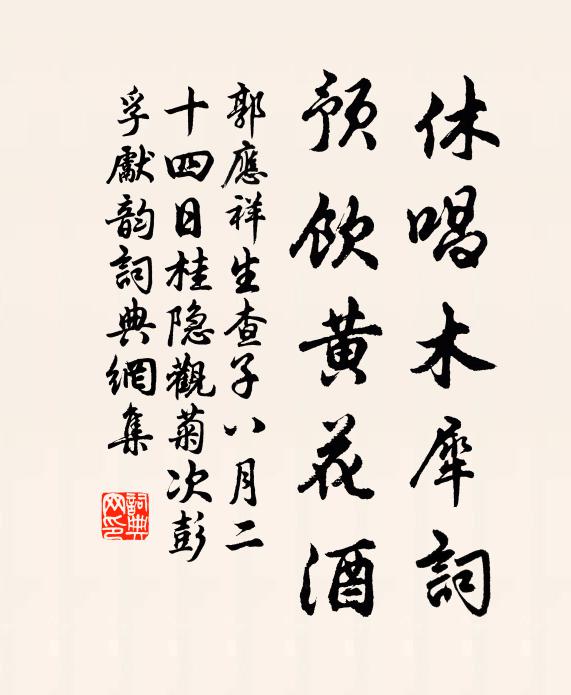 休唱木犀詞
預飲黄花酒
郭應祥生查子八月二
十四日桂隐觀菊次彭
孚獻韵詞典網集
詞典
网印